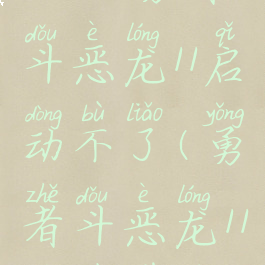 dǒu è lóng qǐ
斗恶龙11启
dòng bù liǎo yǒng
动不了(勇
zhě dǒu è lóng
者斗恶龙11